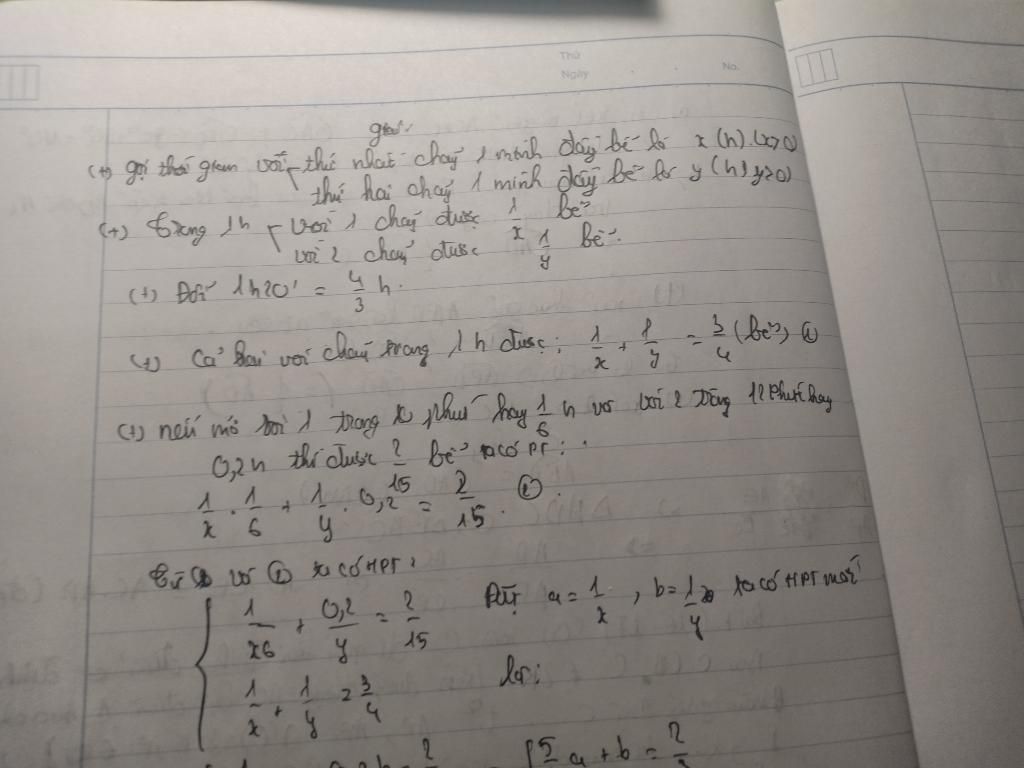 Thứ
Ngày No.
giải:
(+) gọi thời gian vòi thứ nhất chảy 1 mình đầy bể là x (h) (x>0)
thứ hai chảy 1 mình đầy bể là y (h) y>0)
(+) Trong 1h vòi 1 chảy được 1/x bể
vòi 2 chảy được 1/y bể.
(+) Đổi 1h20' = 4/3 h.
(+) Cả hai vòi chảy trong 1h được: 1/x + 1/y = 3/4 (bể) ①
(+) nếu mở vòi 1 trong 10 phút hay 1/6 h và vòi 2 trong 12 phút hay
0,2h thì được 2/15 bể ta có PT:
1/x . 1/6 + 1/y . 0,2 = 2/15 ②.
Từ ① và ② ta có HPT:
{ 1/x6 + 0,2/y = 2/15 Đặt a = 1/x , b = 1/y ta có HPT mới
1/x + 1/y = 3/4 là:
5/ a + b = 2/